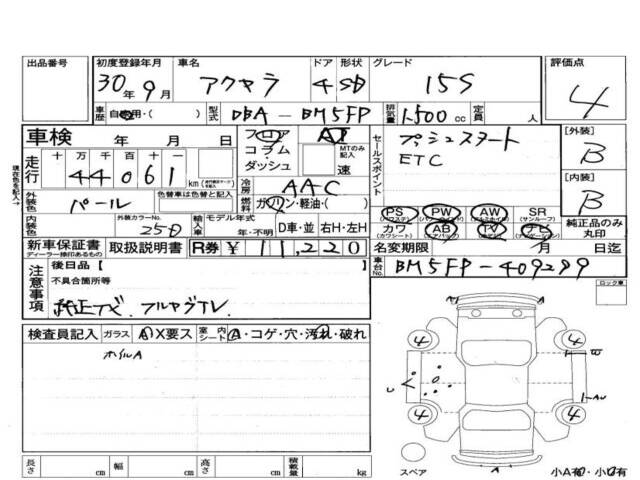 出品番号 初度登録年月 車名 ドア 形状 グレード 評価点
30年9月 アクセラ 4 SD 15S 4
車歴 自家用・( ) 型式 DBA-BM5FP 排気量 1500cc 定員 人
車検 年 月 日 フロア コラム・ダッシュ AT MTのみ記入 速 セールスポイント プッシュスタート [外装] B
走行 十 万 千 百 十 一 44061 km 冷房 AAC ETC [内装] B
現在色を記入
外装色 パール 色替車は色替と記入 ガソリン・軽油・( ) PS PW AW SR 純正品のみ丸印
(パワステ) (パワーウインド) (アルミホイル) (サンルーフ)
内装色 外装カラーNo. 25D 輸入車 モデル年式 年・不明 D車・並 右H・左H カワ AB TV ナビ
(カワシート) (エアバック) (テレビ) (ナビゲーション)
新車保証書 ディーラー捺印あるもの 取扱説明書 R券 ¥11,220 名変期限 月 日迄
注意事項 後日品[ ] 車台No. BM5FP-409299
不具合箇所等 ロック車
純正ナビ. フルセグTV.
検査員記入 ガラス A・X要ス 室内シート A・コゲ・穴・汚れ・破れ
ホイルA
4 4
U B
A U
4 4
長さ cm 幅 cm 高さ cm 積載量 kg スペア A 小A有・小U有